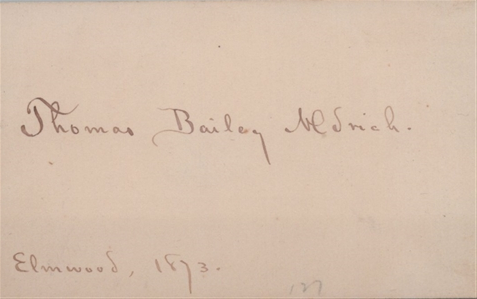 Thomas Bailey Aldrich.
Elmwood, 1873.
127